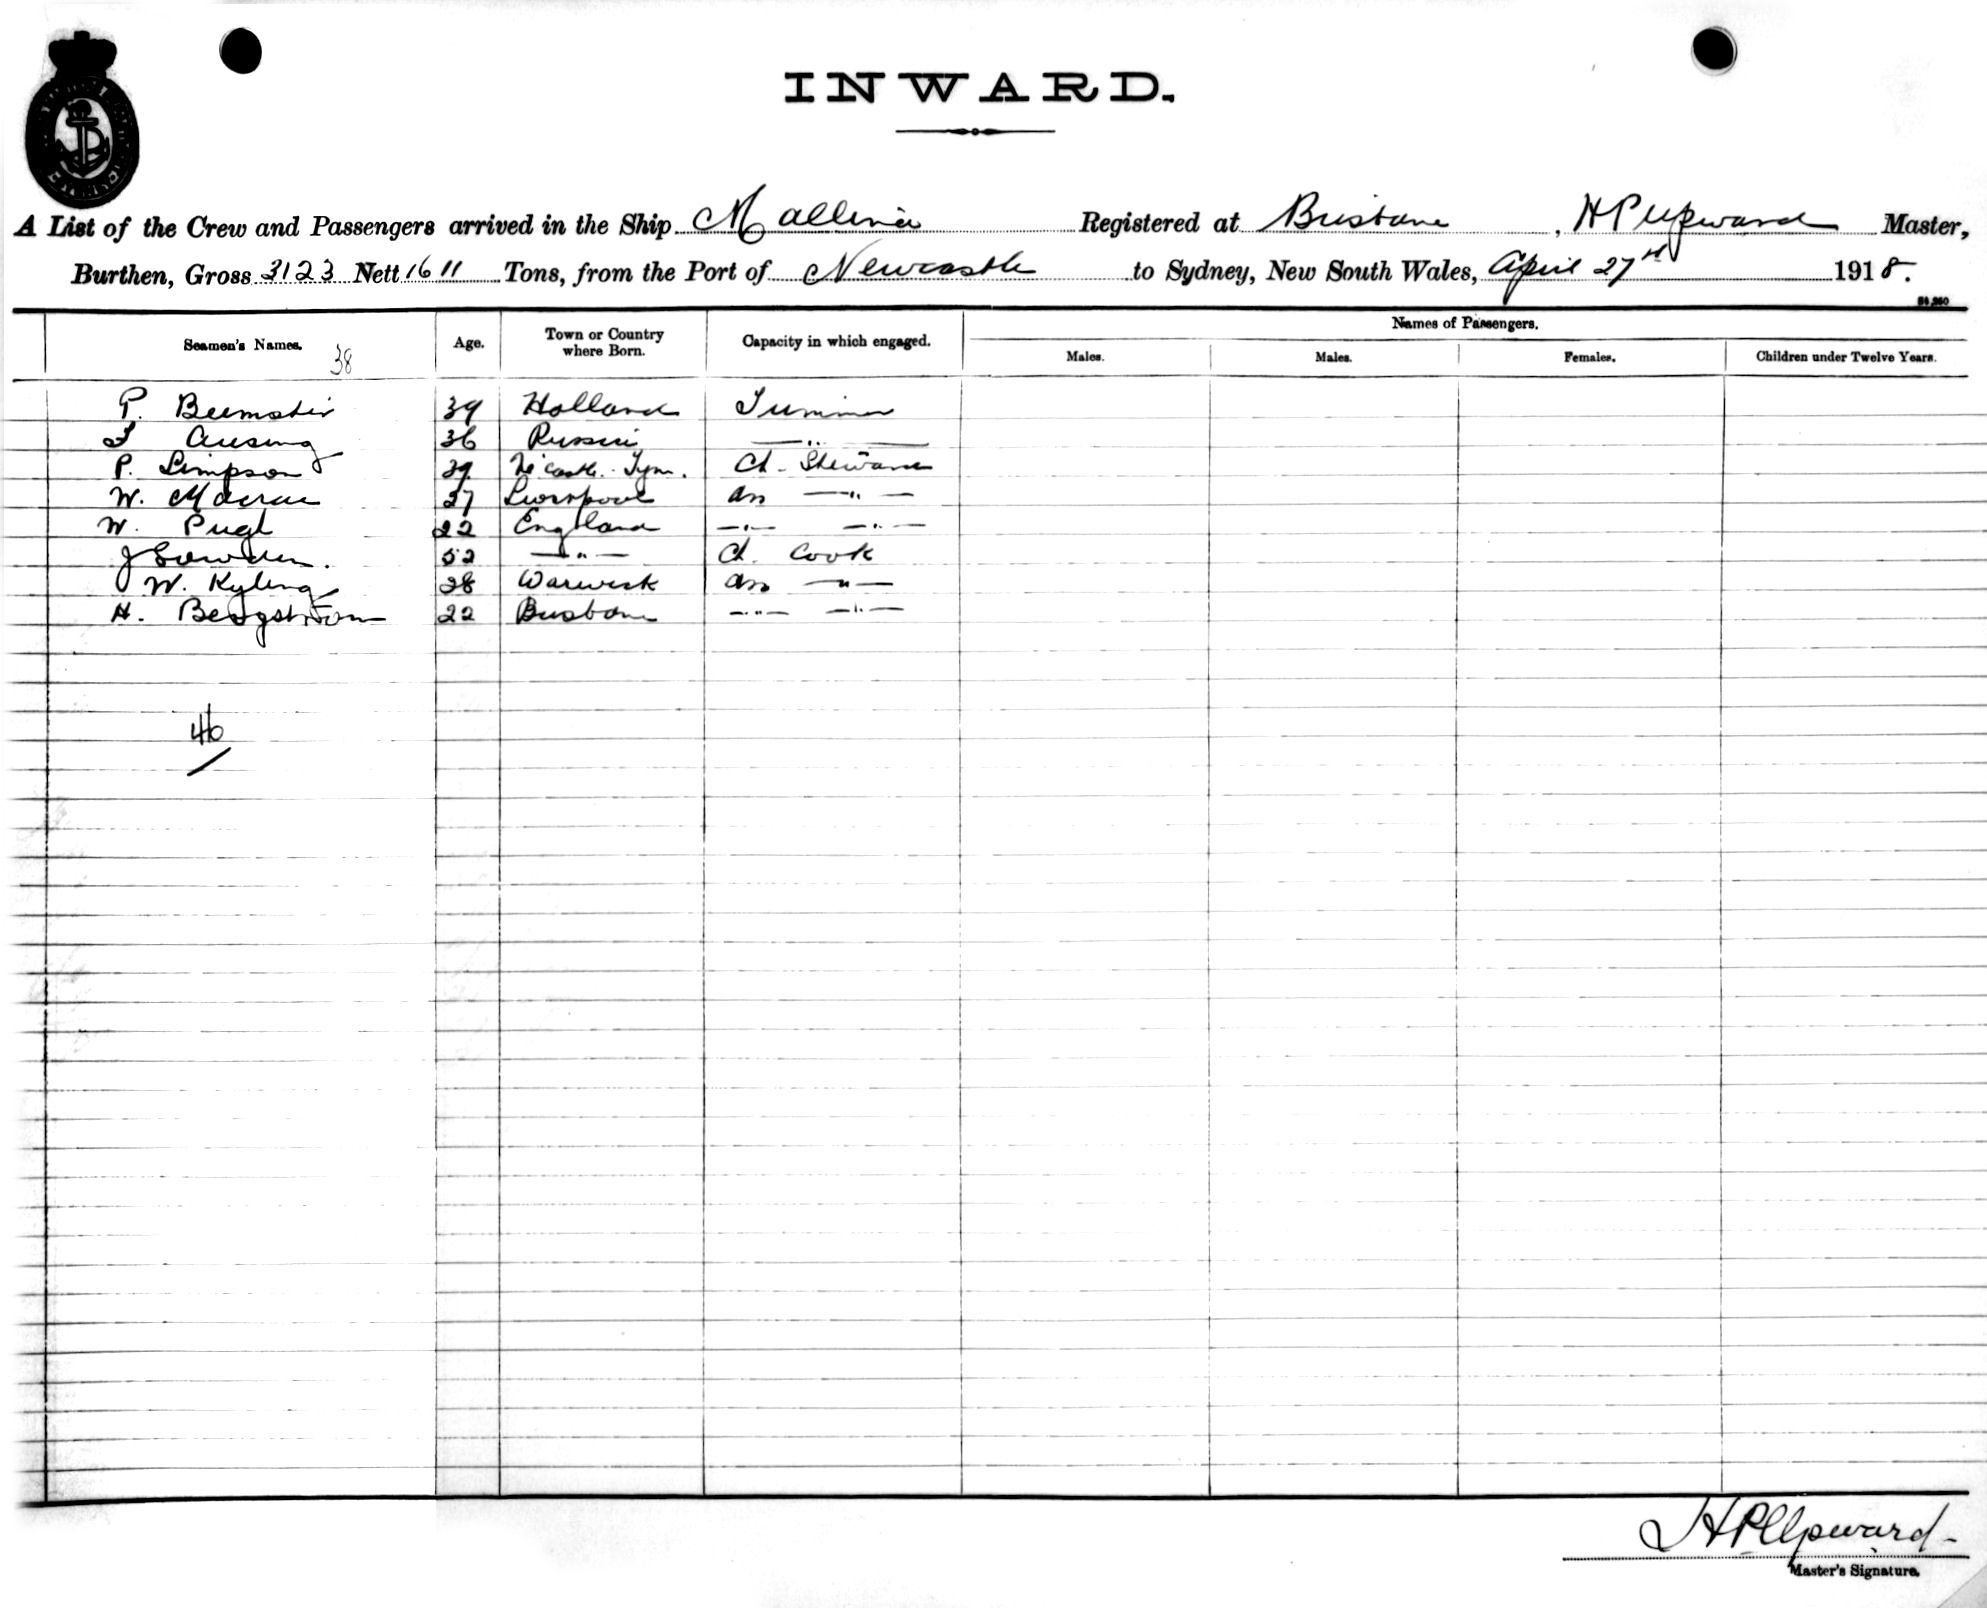 INWARD.
A List of the Crew and Passengers arrived in the Ship Mallina Registered at Brisbane, H P Upward Master,
Burthen, Gross 3123 Nett 1611 Tons, from the Port of Newcastle to Sydney, New South Wales, April 27th 1918.
Names of Passengers.
Seamen's Names. Age. Town or Country where Born. Capacity in which engaged. Males. Males. Females. Children under Twelve Years.
38
P. 39 Holland
36 Russia —„—
P. Simpson 39 N'castle. Tyne. Ch. Steward
W. 27 Liverpool ass —„—
W. Pugh 22 England —„— —„—
J 52 —„— Ch. Cook
W. Kyling 28 Warwick ass —„—
H. Bergstrom 22 Brisbane —„— —„—
46
H P Upward
Master's Signature.